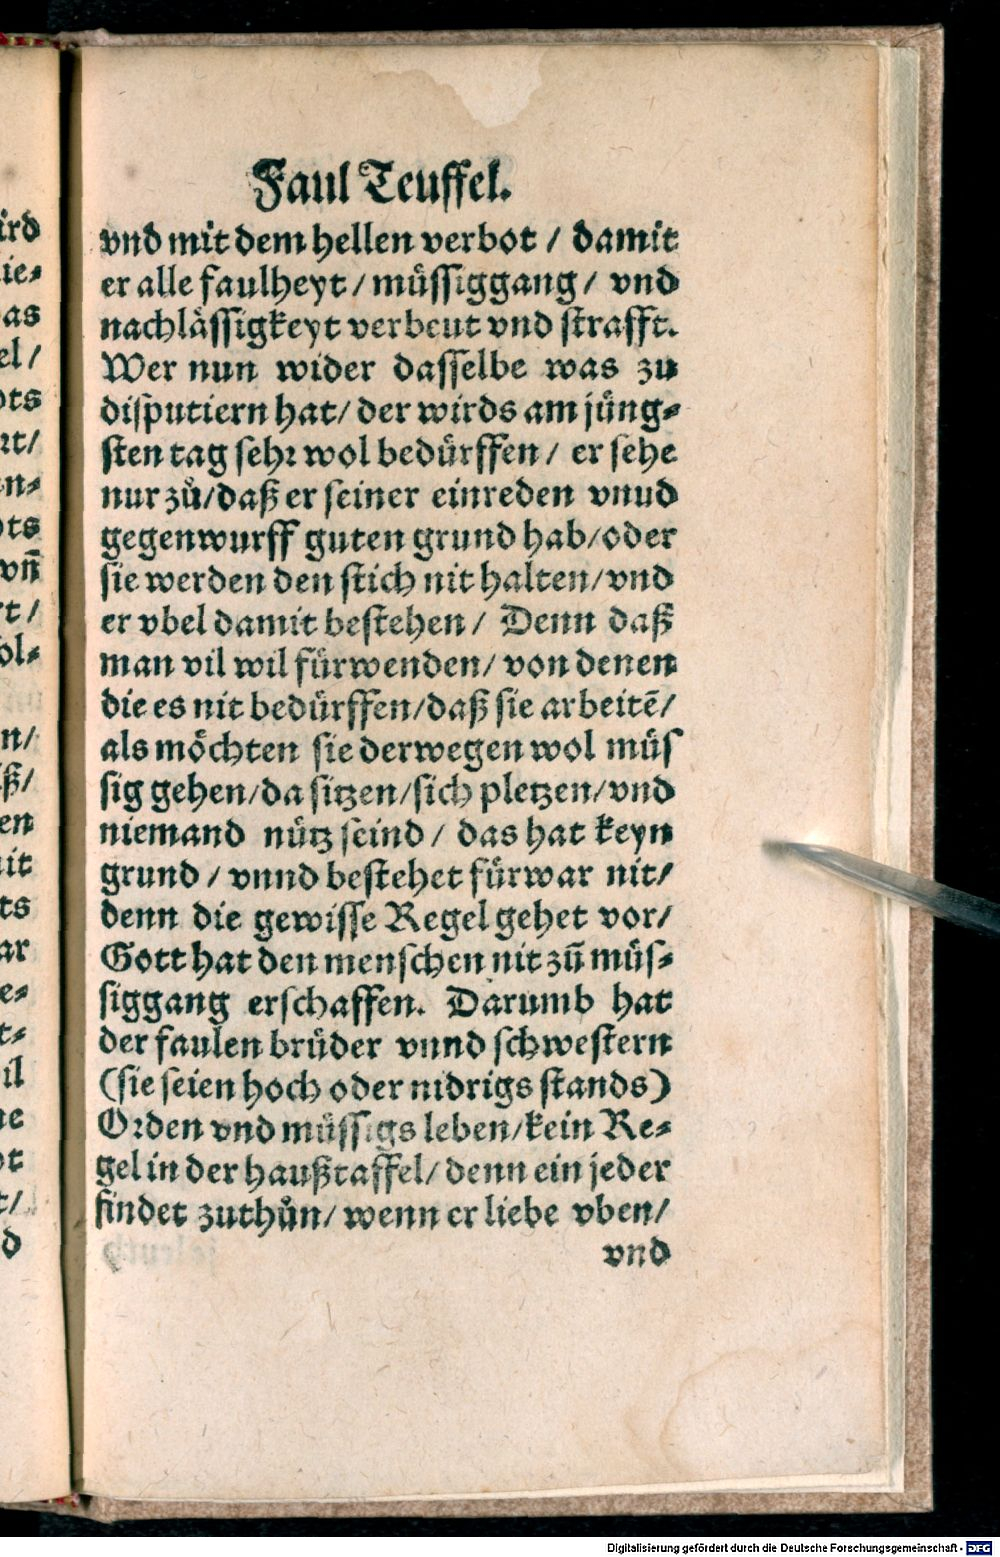 Faul Teuffel.
vnd mit dem hellen verbot / damit
er alle faulheyt / müssiggang / vnd
nachlässigkeyt verbeut vnd strafft.
Wer nun wider dasselbe was zu
disputiern hat / der wirds am jüng⸗
sten tag sehr wol bedürffen / er sehe
nur zů / daß er seiner einreden vnud
gegenwurff guten grund hab / oder
sie werden den stich nit halten / vnd
er vbel damit bestehen / Denn daß
man vil wil fürwenden / von denen
die es nit bedürffen / daß sie arbeitē /
als möchten sie derwegen wol müs
sig gehen / da sitzen / sich pletzen / vnd
niemand nütz seind / das hat keyn
grund / vnnd bestehet fürwar nit /
denn die gewisse Regel gehet vor /
Gott hat den menschen nit zū müs⸗
siggang erschaffen. Darumb hat
der faulen brüder vnnd schwestern
(sie seien hoch oder nidrigs stands)
Orden vnd müssigs leben / kein Re⸗
gel in der haußtaffel / denn ein jeder
findet zuthůn / wenn er liebe vben /
vnd
ird
ie⸗
as
el /
ots
rt /
n⸗
ots
vn̄
t /
ol⸗
n /
ß /
en
it
ts
ar
e⸗
t⸗
il
ne
ot
t /
d
Digitalisierung gefördert durch die Deutsche Forschungsgemeinschaft - DFG